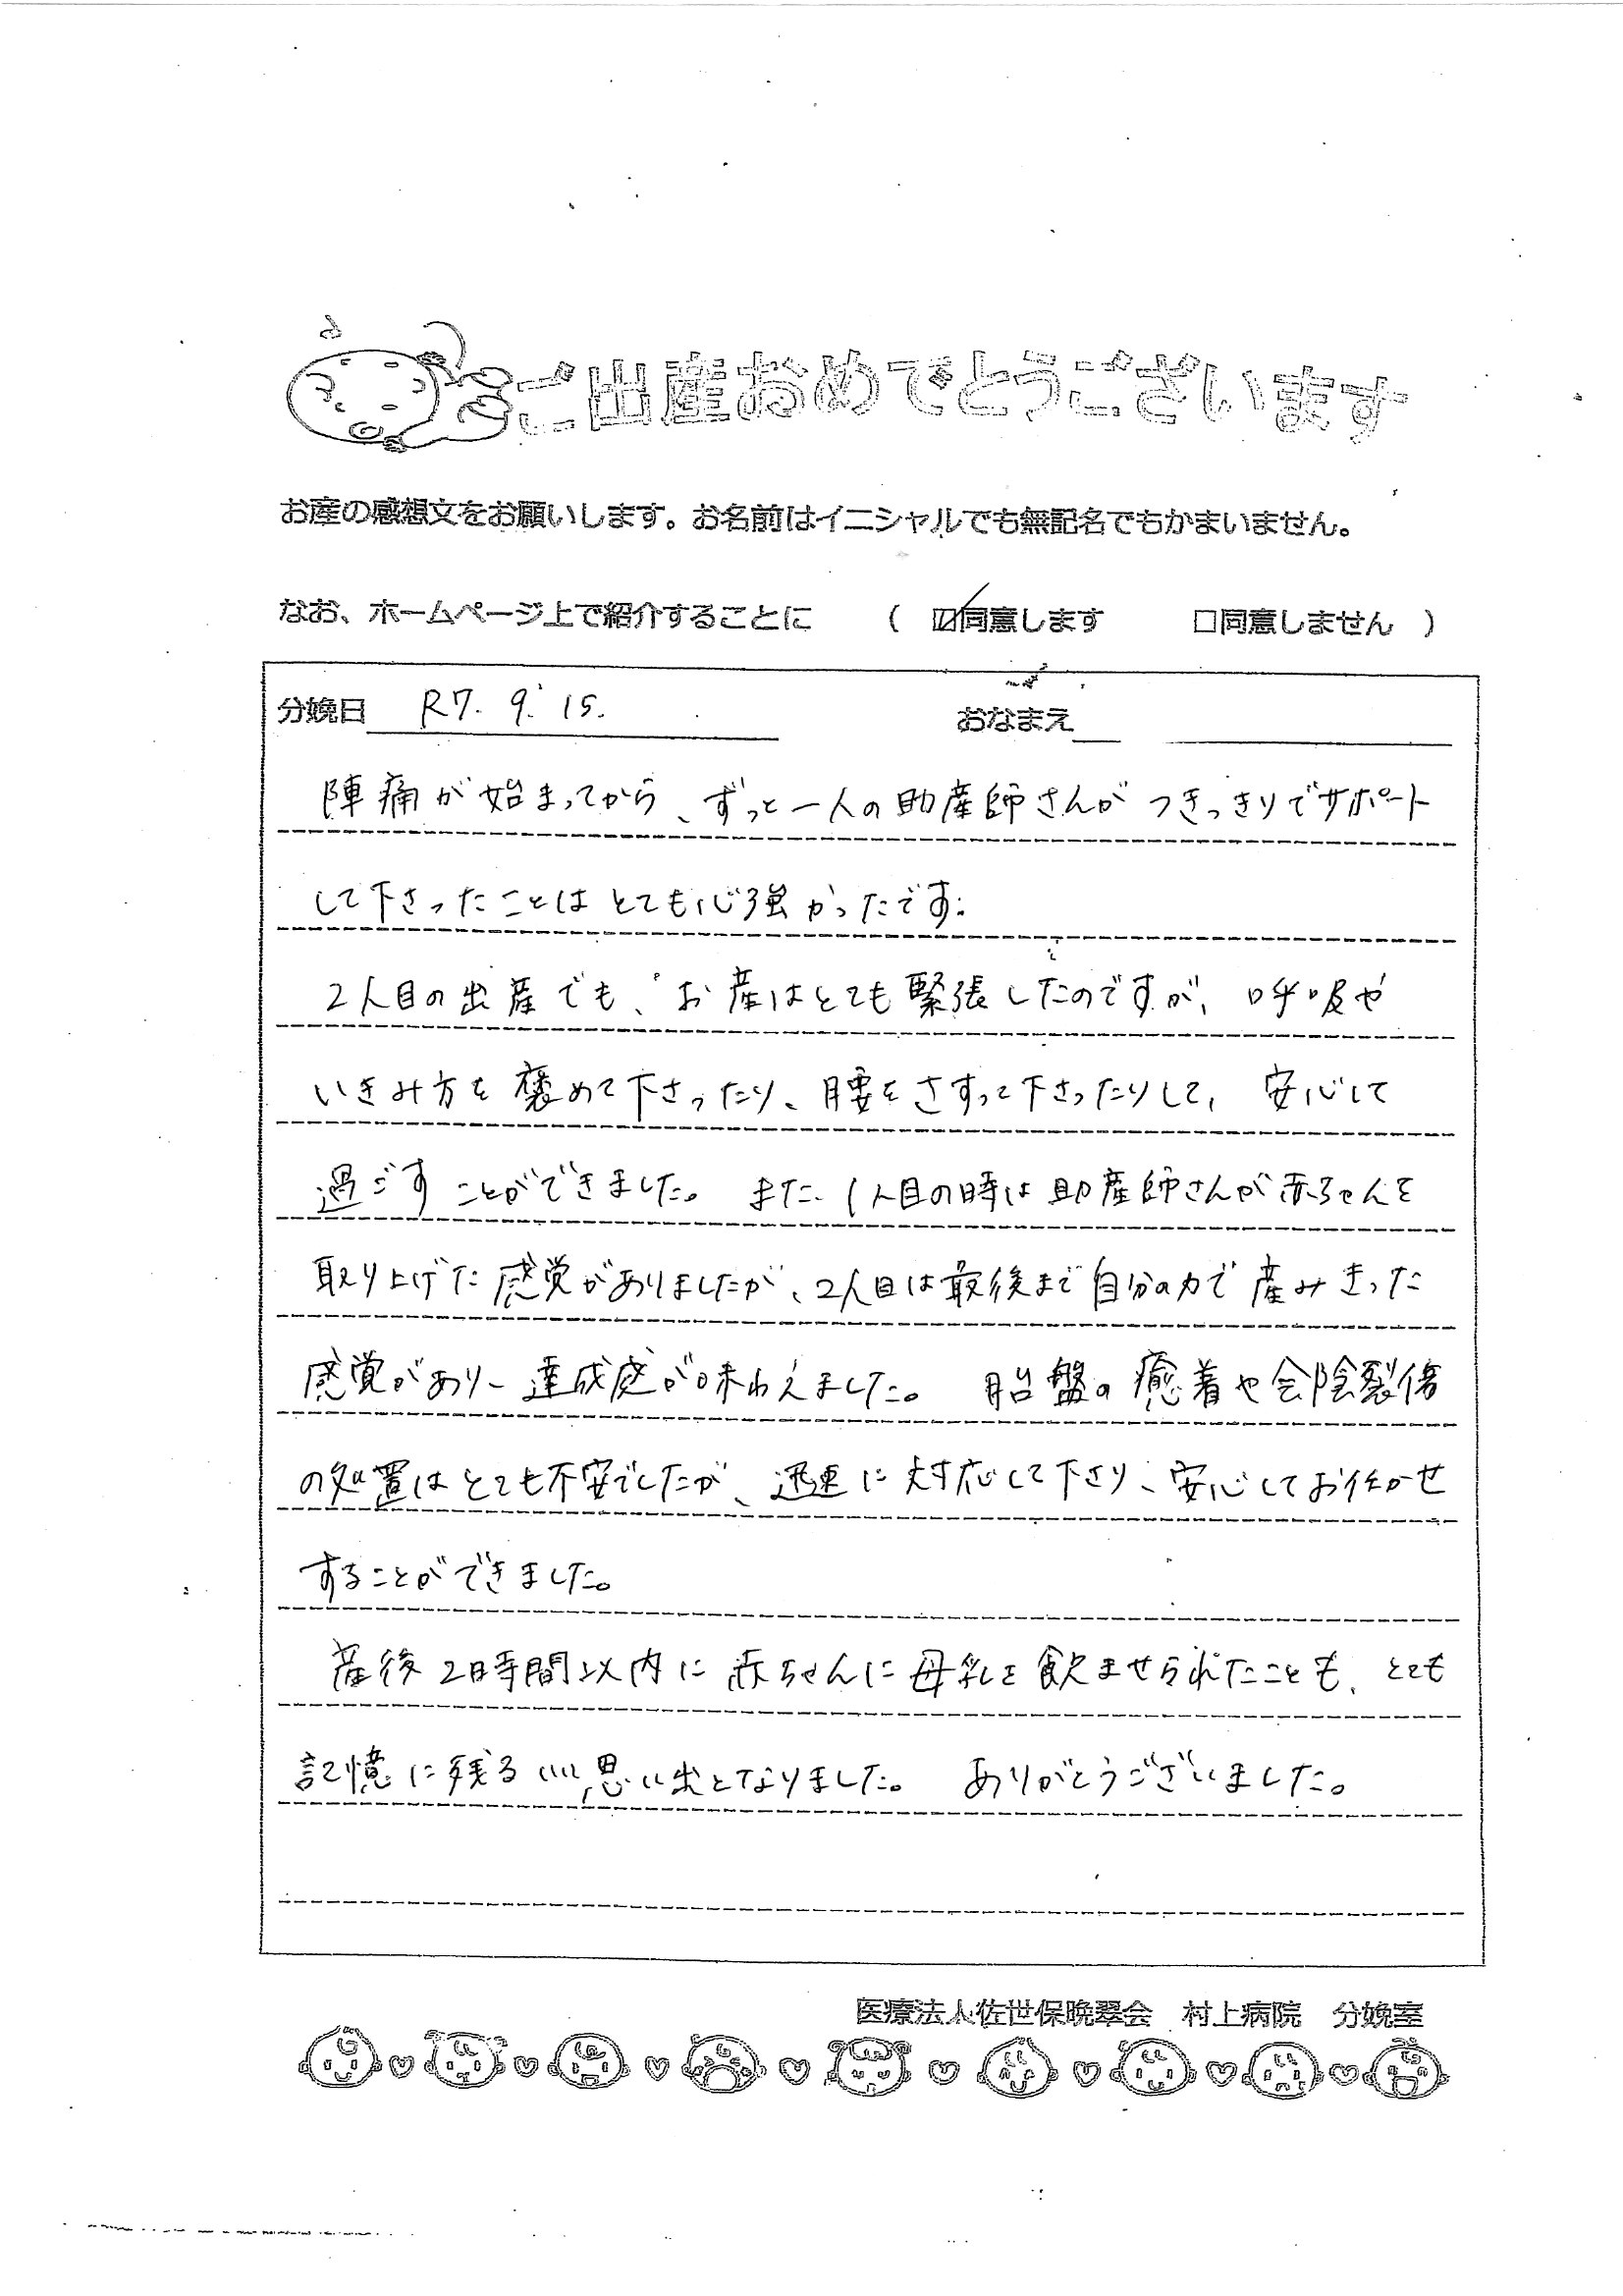 ご出産おめでとうございます
お産の感想文をお願いします。お名前はイニシャルでも無記名でもかまいません。
なお、ホームページ上で紹介することに （ ☑同意します □同意しません ）
分娩日 R7. 9. 15. おなまえ
陣痛が始まってから、ずっと一人の助産師さんがつきっきりでサポート
して下さったことはとても心強かったです。
2人目の出産でも、お産はとても緊張したのですが、呼吸や
いきみ方を褒めて下さったり、腰をさすって下さったりして、安心して
過ごすことができました。また、1人目の時は助産師さんが赤ちゃんを
取り上げた感覚がありましたが、2人目は最後まで自分の力で産みきった
感覚があり、達成感が味わえました。胎盤の癒着や会陰裂傷
の処置はとても不安でしたが、迅速に対応して下さり、安心してお任せ
することができました。
産後2時間以内に赤ちゃんに母乳を飲ませられたことも、とても
記憶に残るいい思い出となりました。ありがとうございました。
医療法人佐世保晩翠会 村上病院 分娩室